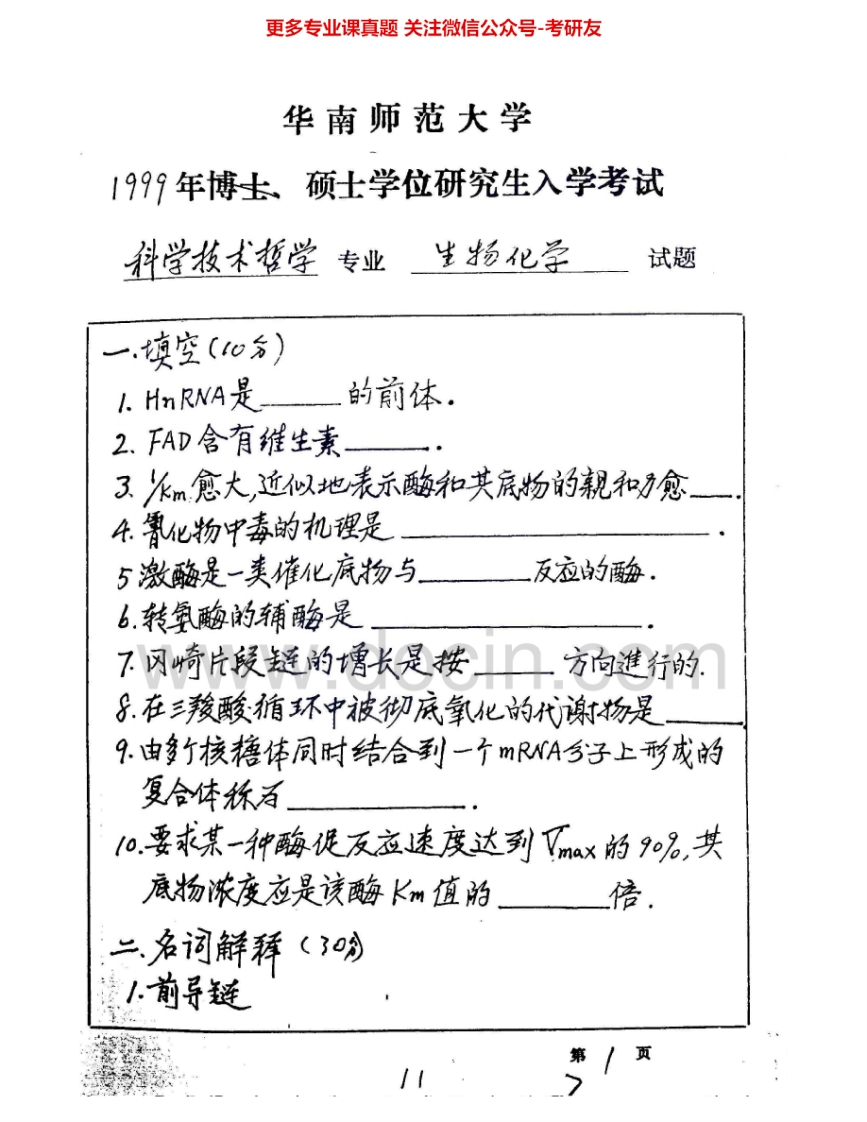 更多专业课真题 关注微信公众号-考研友
华南师范大学
1999年博士、硕士学位研究生入学考试
科学技术哲学 专业 生物化学 试题
一.填空(10分)
1. HnRNA是______的前体.
2. FAD含有维生素______.
3. 1/Km愈大,近似地表示酶和其底物的親和力愈___.
4. 氰化物中毒的机理是______________________.
5 激酶是一类催化底物与________反应的酶.
6. 转氨酶的辅酶是____________________.
7. 冈崎片段链的增长是按______方向進行的.
8. 在三羧酸循环中被彻底氧化的代谢物是______
9. 由多个核糖体同时结合到一个mRNA分子上形成的
复合体称为______________.
10. 要求某一种酶促反应速度达到Vmax的90%,其
底物浓度应是该酶Km值的________倍.
二.名词解释(30分)
1. 前导链
www.docin.com
第 1 页
11
7